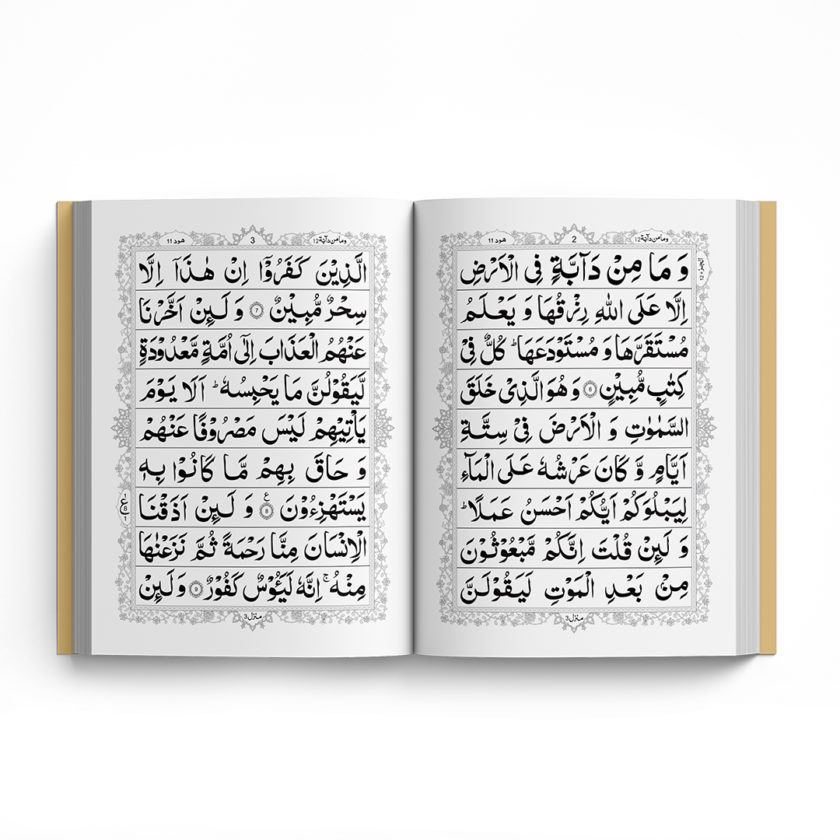 هود ١١
2
ومامن دآبة ١٢
وَ مَا مِنۡ دَآبَّةٍ فِی الۡاَرۡضِ
اِلَّا عَلَی اللّٰهِ رِزۡقُهَا وَ یَعۡلَمُ
مُسۡتَقَرَّهَا وَ مُسۡتَوۡدَعَهَا ؕ كُلٌّ فِیۡ
كِتٰبٍ مُّبِیۡنٍ ۝۶ وَ هُوَ الَّذِیۡ خَلَقَ
السَّمٰوٰتِ وَ الۡاَرۡضَ فِیۡ سِتَّةِ
اَیَّامٍ وَّ كَانَ عَرۡشُهٗ عَلَی الۡمَآءِ
لِیَبۡلُوَكُمۡ اَیُّكُمۡ اَحۡسَنُ عَمَلًا ؕ
وَ لَئِنۡ قُلۡتَ اِنَّكُمۡ مَّبۡعُوۡثُوۡنَ
مِنۡۢ بَعۡدِ الۡمَوۡتِ لَیَقُوۡلَنَّ
منزل ٣
هود ١١
3
ومامن دآبة ١٢
الَّذِیۡنَ كَفَرُوۡۤا اِنۡ هٰذَاۤ اِلَّا
سِحۡرٌ مُّبِیۡنٌ ۝۷ وَ لَئِنۡ اَخَّرۡنَا
عَنۡهُمُ الۡعَذَابَ اِلٰۤی اُمَّةٍ مَّعۡدُوۡدَةٍ
لَّیَقُوۡلُنَّ مَا یَحۡبِسُهٗ ؕ اَلَا یَوۡمَ
یَاۡتِیۡهِمۡ لَیۡسَ مَصۡرُوۡفًا عَنۡهُمۡ
وَ حَاقَ بِهِمۡ مَّا كَانُوۡا بِهٖ
یَسۡتَهۡزِءُوۡنَ ۝۸ وَ لَئِنۡ اَذَقۡنَا
الۡاِنۡسَانَ مِنَّا رَحۡمَةً ثُمَّ نَزَعۡنٰهَا
مِنۡهُ ۚ اِنَّهٗ لَیَـُٔوۡسٌ كَفُوۡرٌ ۝۹ وَ لَئِنۡ
منزل ٣